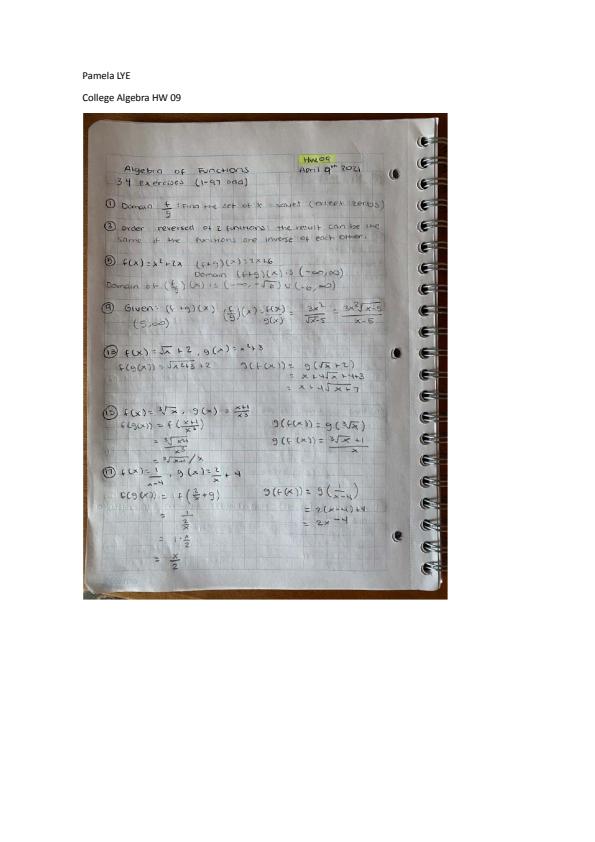 Pamela LYE
College Algebra HW 09
HW 09
Algebra of Functions April 9th 2021
3.4 exercises (1-97 odd)
① Domain f/g : Find the set of x
③ order reversed of 2 functions, the result can be the
same if the functions are inverse of each other.
⑤ f(x)=x²+2x (f+g)(x)=2x+6
Domain (f+g)(x) is (-∞,∞)
Domain of (f/g)(x) is (-∞, -√6) ∪ (-6, ∞)
⑨ Given: (f+g)(x) (f/g)(x) = f(x)/g(x) = 3x²/√x-5 = 3x²√x-5/x-5
(5,∞)
⑬ f(x)=√x+2, g(x)=x²+3
f(g(x))=√x²+3+2 g(f(x))= g(√x+2)
= x+4√x+4+3
= x+4√x+7
⑮ f(x)=³√x, g(x)= x+1/x³
f(g(x))= f(x+1/x³) g(f(x))= g(³√x)
= ³√x+1/x³ g(f(x))= ³√x+1/x
= ³√x+1/x
⑰ f(x)=1/x-4, g(x)=2/x+4
f(g(x))= f(2/x+9) g(f(x))= g(1/x-4)
= 1/2/x = 2(x-4)+4
= 1·x/2 = 2x-4
= x/2